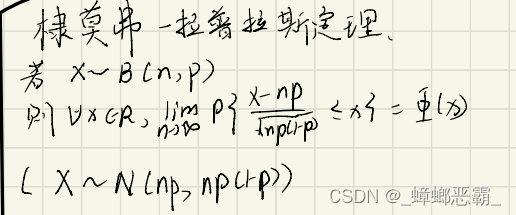 棣莫弗-拉普拉斯定理.
若 X~B(n,p)
则 ∀x∈R, lim n→∞ P{ (X-np)/√(np(1-p)) ≤ x } = Φ(x)
( X~N(np, np(1-p))
CSDN @_蟑螂恶霸_